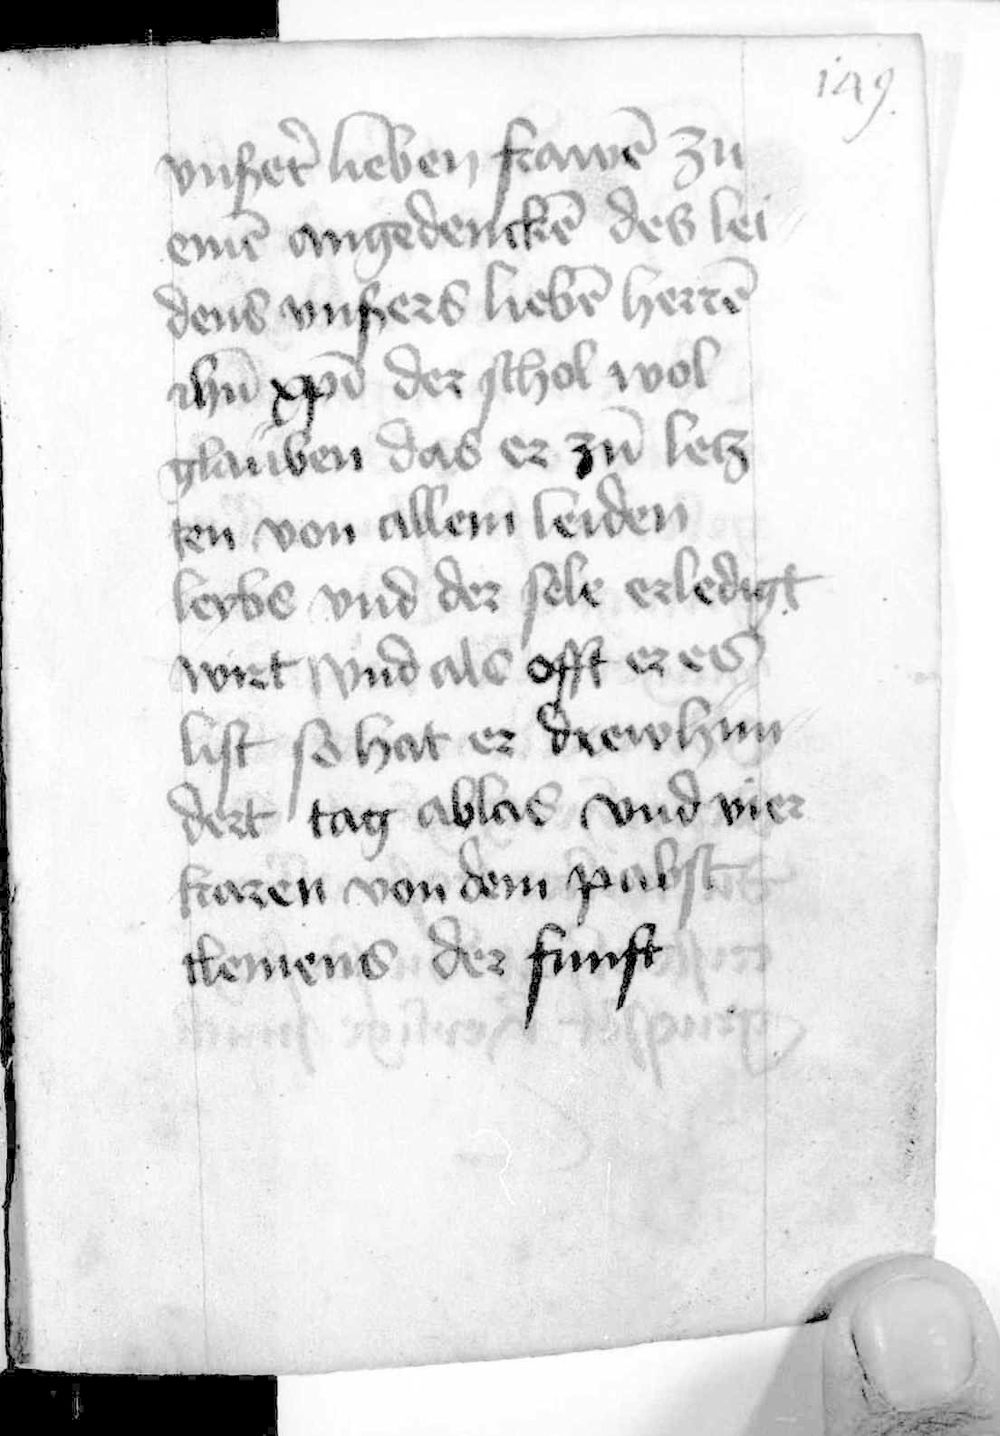 149.
vnßer lieben frawē zu
einē angedenckē des lei
dens vnßers liebē herrē
ihū xpī der schol wol
glauben das er zū letz
ten von allem leiden
leybs vnd der sele erledigt
wirt vnd als offt er es
list so hat er drewhun
dert tag ablas vnd vier
karēn von dem pabst
clemens der funft